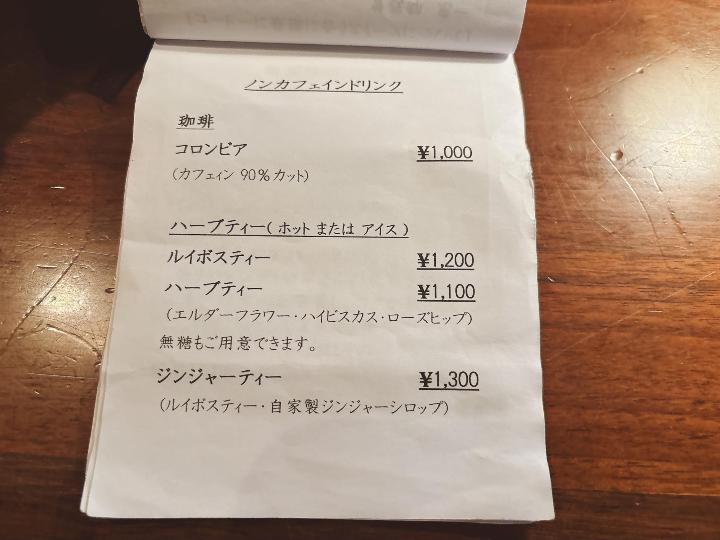 ノンカフェインドリンク
珈琲
コロンビア ¥1,000
(カフェイン 90%カット)
ハーブティー( ホット または アイス )
ルイボスティー ¥1,200
ハーブティー ¥1,100
(エルダーフラワー・ハイビスカス・ローズヒップ)
無糖もご用意できます。
ジンジャーティー ¥1,300
(ルイボスティー・自家製ジンジャーシロップ)